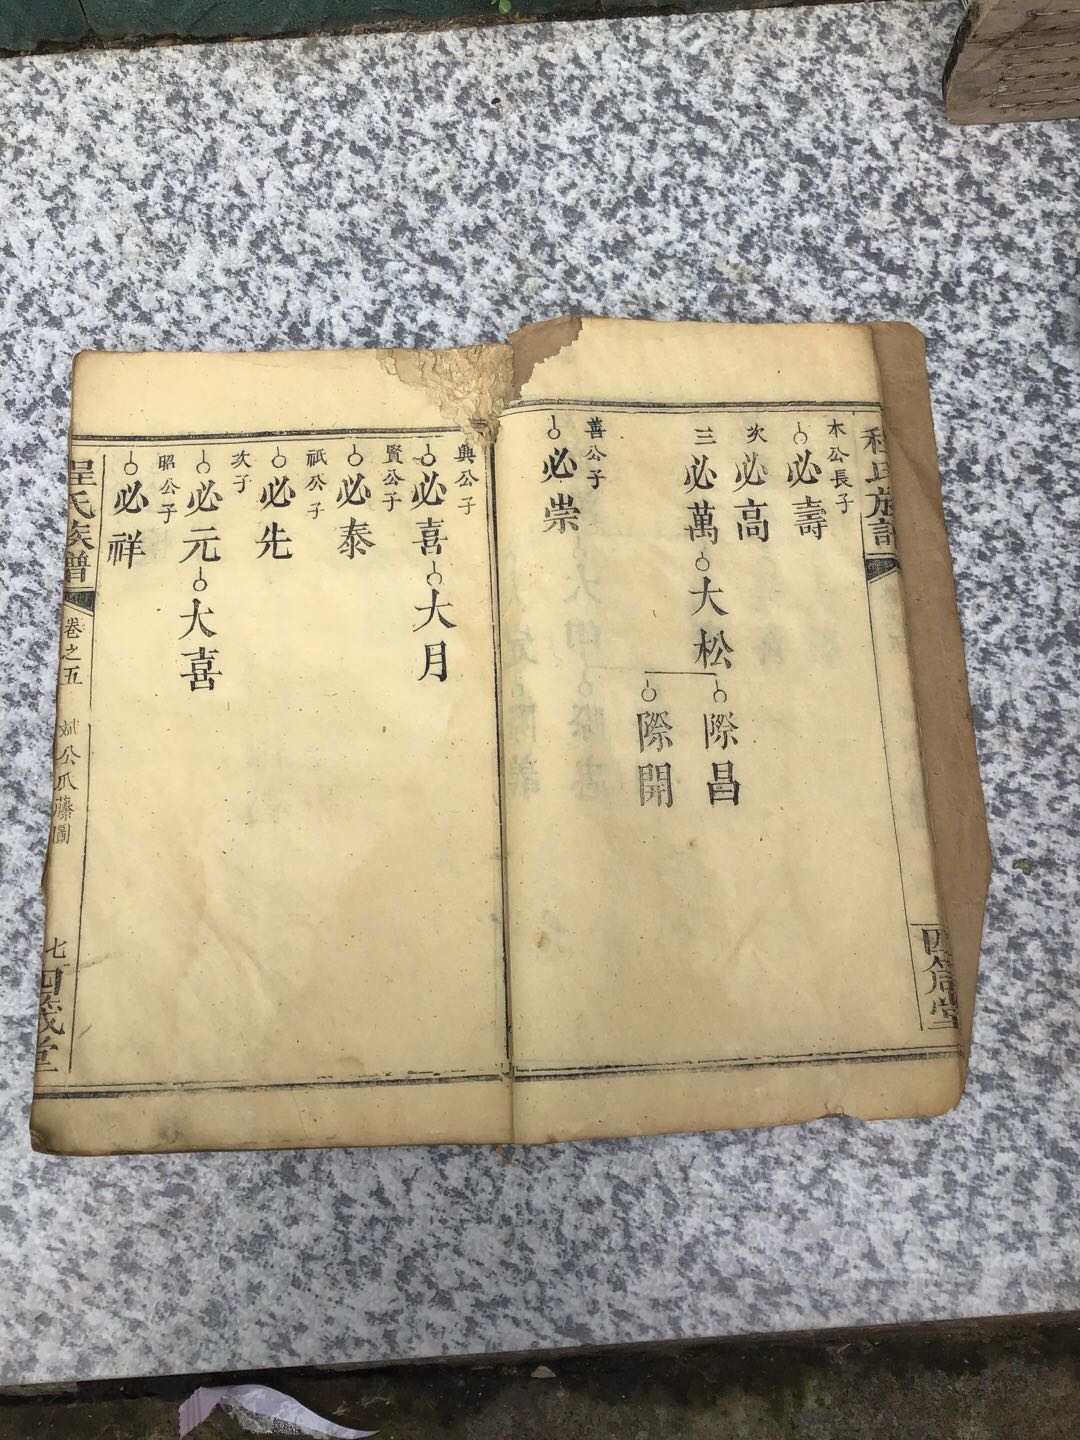 程氏族譜
四箴堂
木公長子
必壽
次
必高
三
必萬
大松
際昌
際開
善公子
必崇
興公子
必喜
大月
賢公子
必泰
祇公子
必先
次子
必元
大喜
昭公子
必祥
程氏族譜
卷之五
公瓜藤圖
七
四箴堂